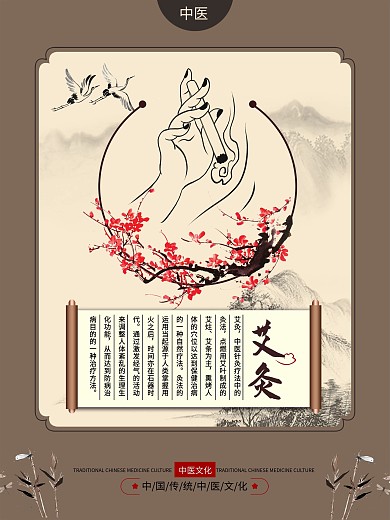 中医
艾灸
艾灸，中医针灸疗法中的
灸法，点燃用艾叶制成的
艾炷、艾条为主，熏烤人
体的穴位以达到保健治病
的一种自然疗法。灸法的
运用当起源于人类掌握用
火之后，时间亦在石器时
代。通过激发经气的活动
来调整人体紊乱的生理生
化功能，从而达到防病治
病目的的一种治疗方法。
TRADITIONAL CHINESE MEDICINE CULTURE 中医文化 TRADITIONAL CHINESE MEDICINE CULTURE
中/国/传/统/中/医/文/化